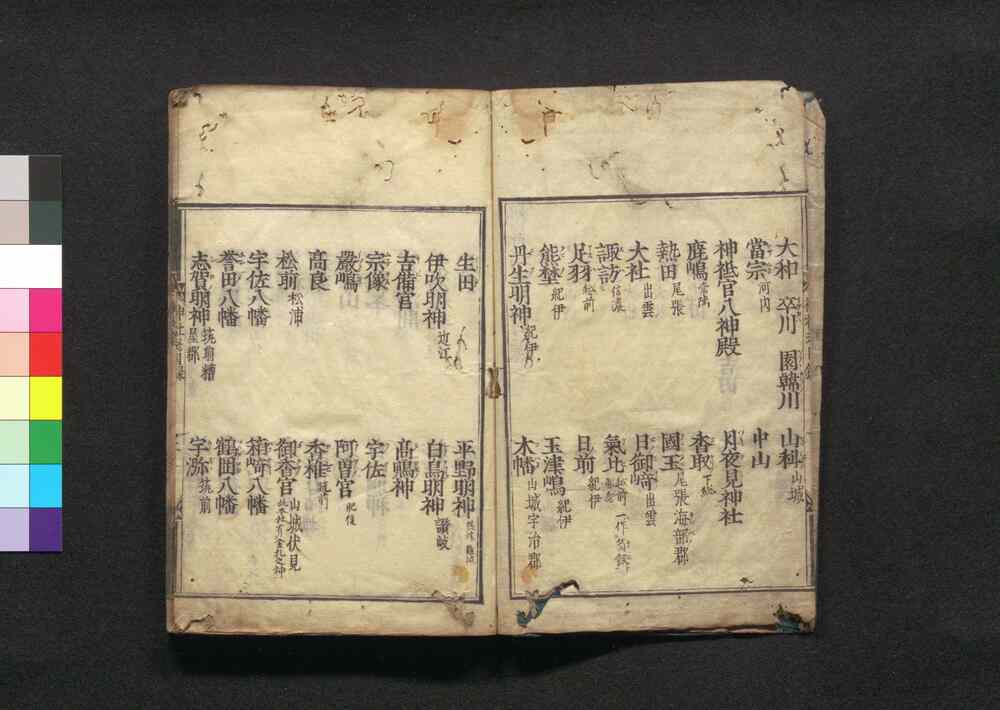 大和　卒川　園韓川　山科山城
當宗河内　中山
神祗官八神殿　月夜見神社
鹿嶋常陸　香取下総
熱田尾張　國玉尾張海部郡
大社出雲　日御﨑出雲
諏訪信濃　氣比越前
足羽越前　日前紀伊
能埜紀伊　玉津嶋紀伊
丹生明神紀伊　木幡山城宇治郡
生田　平野明神
伊吹明神近江　白鳥明神讃岐
吉備宮　髙鴨神
宗像　宇佐
嚴嶋　阿曽宮肥後
髙良　香椎筑前
松前松浦　御香宮山城伏見
宇佐八幡　箱﨑八幡
誉田八幡　鶴田八幡
志賀明神筑前糟屋郡　宇瀰筑前